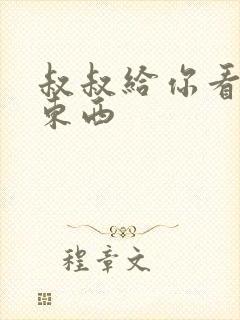 叔叔給你看
東西
程章文